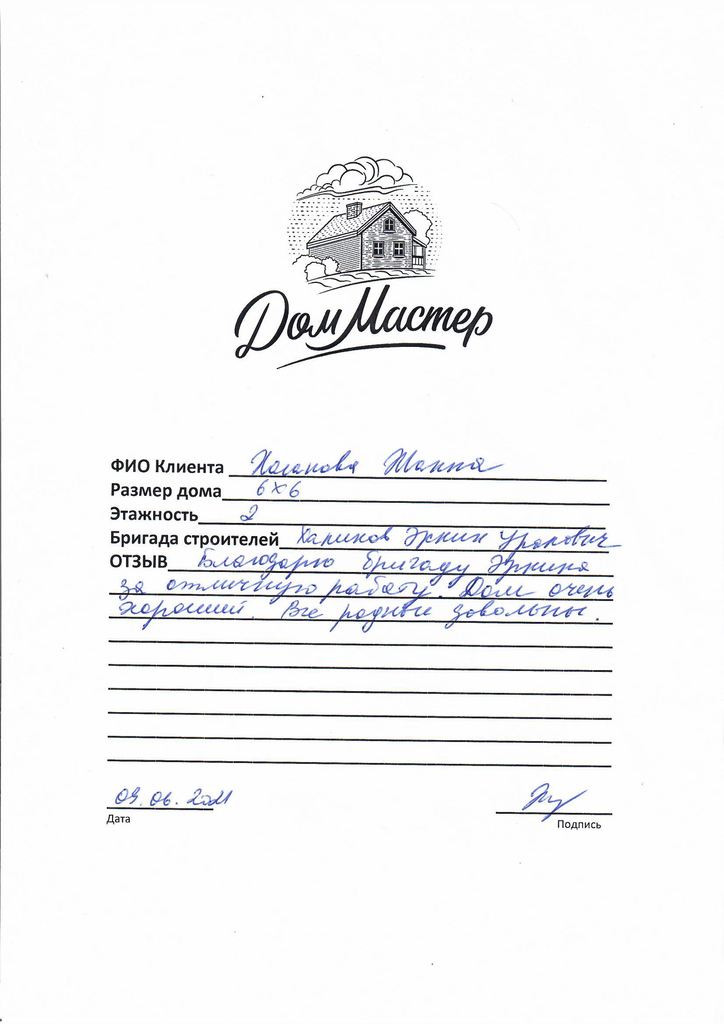 Дом Мастер
ФИО Клиента Хасанова Жанна
Размер дома 6х6
Этажность 2
Бригада строителей Халиков Эркин Уралович
ОТЗЫВ Благодарю бригаду Эркина
за отличную работу. Дом очень
хороший. Все родные довольны.
09.06.2021
Дата
Подпись